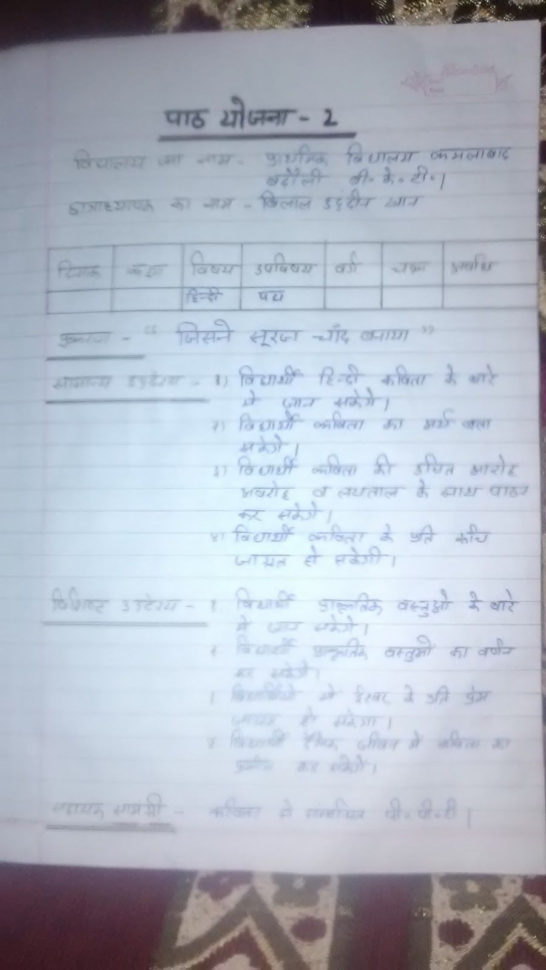 पाठ योजना - 2
विद्यालय का नाम - प्राथमिक विद्यालय कमलाबाद
बढ़ौली बी॰ के॰ टी॰।
छात्राध्यापक का नाम - बिलाल उद्दीन खान
दिनांक कक्षा विषय उपविषय वर्ग चक्र अवधि
हिन्दी पद्य
प्रकरण - " जिसने सूरज चाँद बनाया "
सामान्य उद्देश्य - १) विद्यार्थी हिन्दी कविता के बारे
में जान सकेंगे।
२) विद्यार्थी कविता का अर्थ बता
सकेंगे।
३) विद्यार्थी कविता की उचित आरोह
अवरोह व लयताल के साथ पाठन
कर सकेंगे।
४) विद्यार्थी कविता के प्रति रूचि
जाग्रत हो सकेगी।
विशिष्ट उद्देश्य - १ विद्यार्थी प्राकृतिक वस्तुओं के बारे
में जान सकेंगे।
विद्यार्थी प्राकृतिक वस्तुओं का वर्णन
कर सकेंगे।
विद्यार्थियों में ईश्वर के प्रति प्रेम
जाग्रत हो सकेगा।
विद्यार्थी दैनिक जीवन में कविता का
प्रयोग कर सकेंगे।
सहायक सामग्री - कविता से सम्बन्धित पी॰ पी॰ टी।